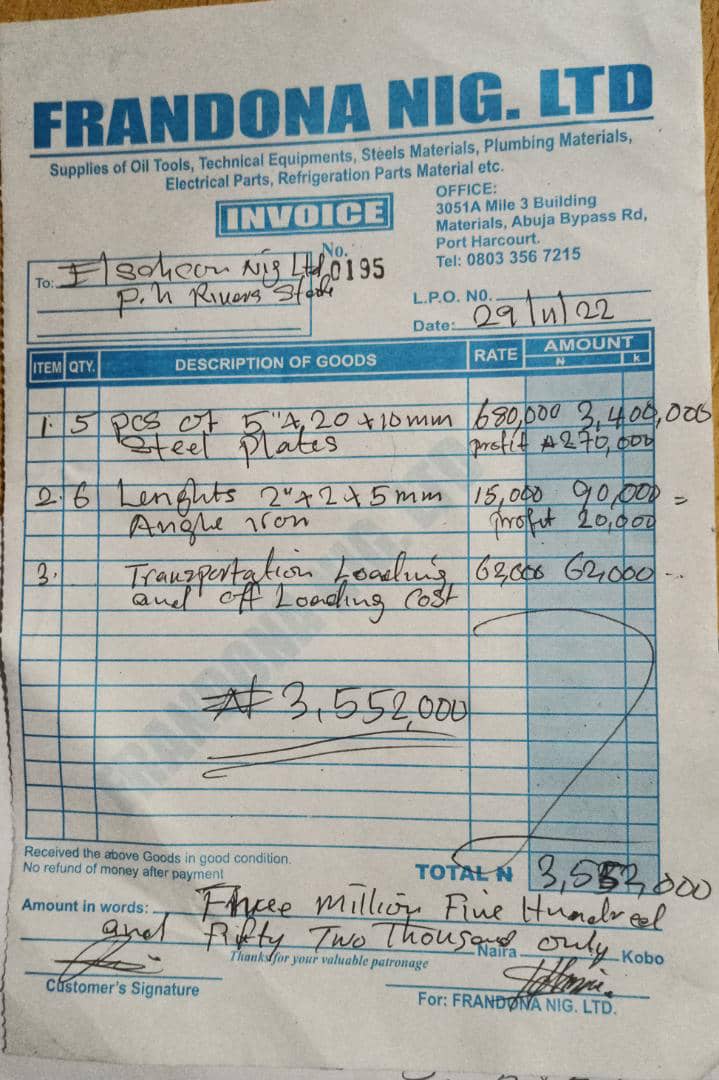 FRANDONA NIG. LTD
Supplies of Oil Tools, Technical Equipments, Steels Materials, Plumbing Materials,
Electrical Parts, Refrigeration Parts Material etc.
INVOICE
OFFICE:
3051A Mile 3 Building
Materials, Abuja Bypass Rd,
Port Harcourt.
Tel: 0803 356 7215
No. 0195
To: Nig Ltd
P.h Rivers State
L.P.O. NO.
Date: 29/11/22
ITEM QTY. DESCRIPTION OF GOODS RATE AMOUNT
N K
1. 5 pcs of 5"4,20 x 10mm 680,000 3,400,000
Steel Plates profit ₦270,000
2. 6 Lenghts 2"x2x5mm 15,000 90,000 =
Anghe iron profit 20,000
3. Transportation Loading 62,000 62,000
and off Loading Cost
₦3,552,000
FRANDONA NIG. LTD
Received the above Goods in good condition.
No refund of money after payment
TOTAL N 3,552,000
Amount in words: Three million Five Hundred
and Fifty Two Thousand only Naira Kobo
Thanks for your valuable patronage
Customer's Signature
For: FRANDONA NIG. LTD.